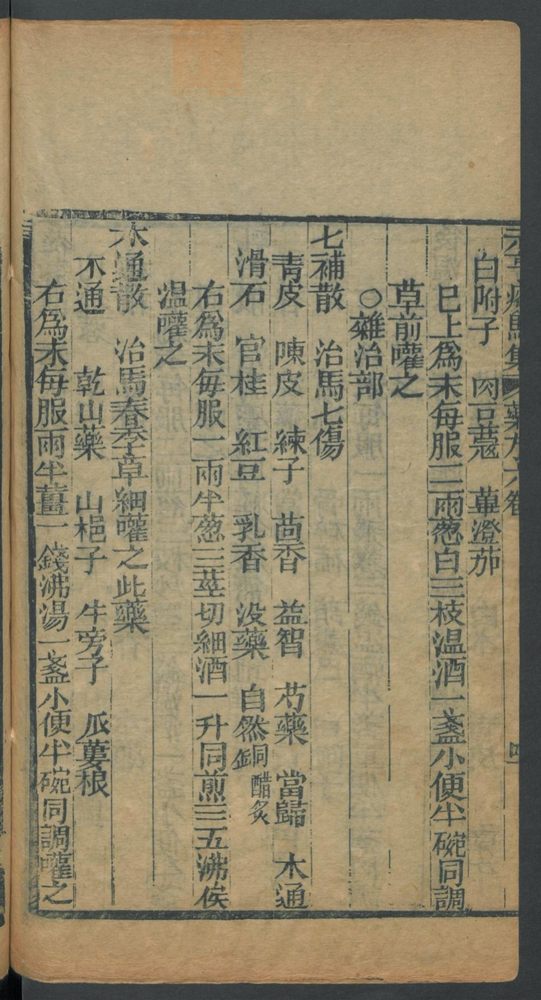 元亨療馬集 藥方 六卷
白附子 肉荳蔻 蓽澄茄
巳上爲末每服二兩葱白三枝温酒一盞小便半碗同調
草前嚾之
○雜治部
七補散 治馬七傷
靑皮 陳皮 練子 茴香 益智 芍藥 當歸 木通
滑石 官桂 紅豆 乳香 没藥 自然銅醋炙
右爲末每服一兩半葱三莖切細酒一升同煎三五沸俟
温嚾之
木通散 治馬春季草細嚾之此藥
木通 乾山藥 山栀子 牛旁子 瓜蔞根
右爲末每服兩半薑一錢沸湯一盞小便半碗同調嚾之